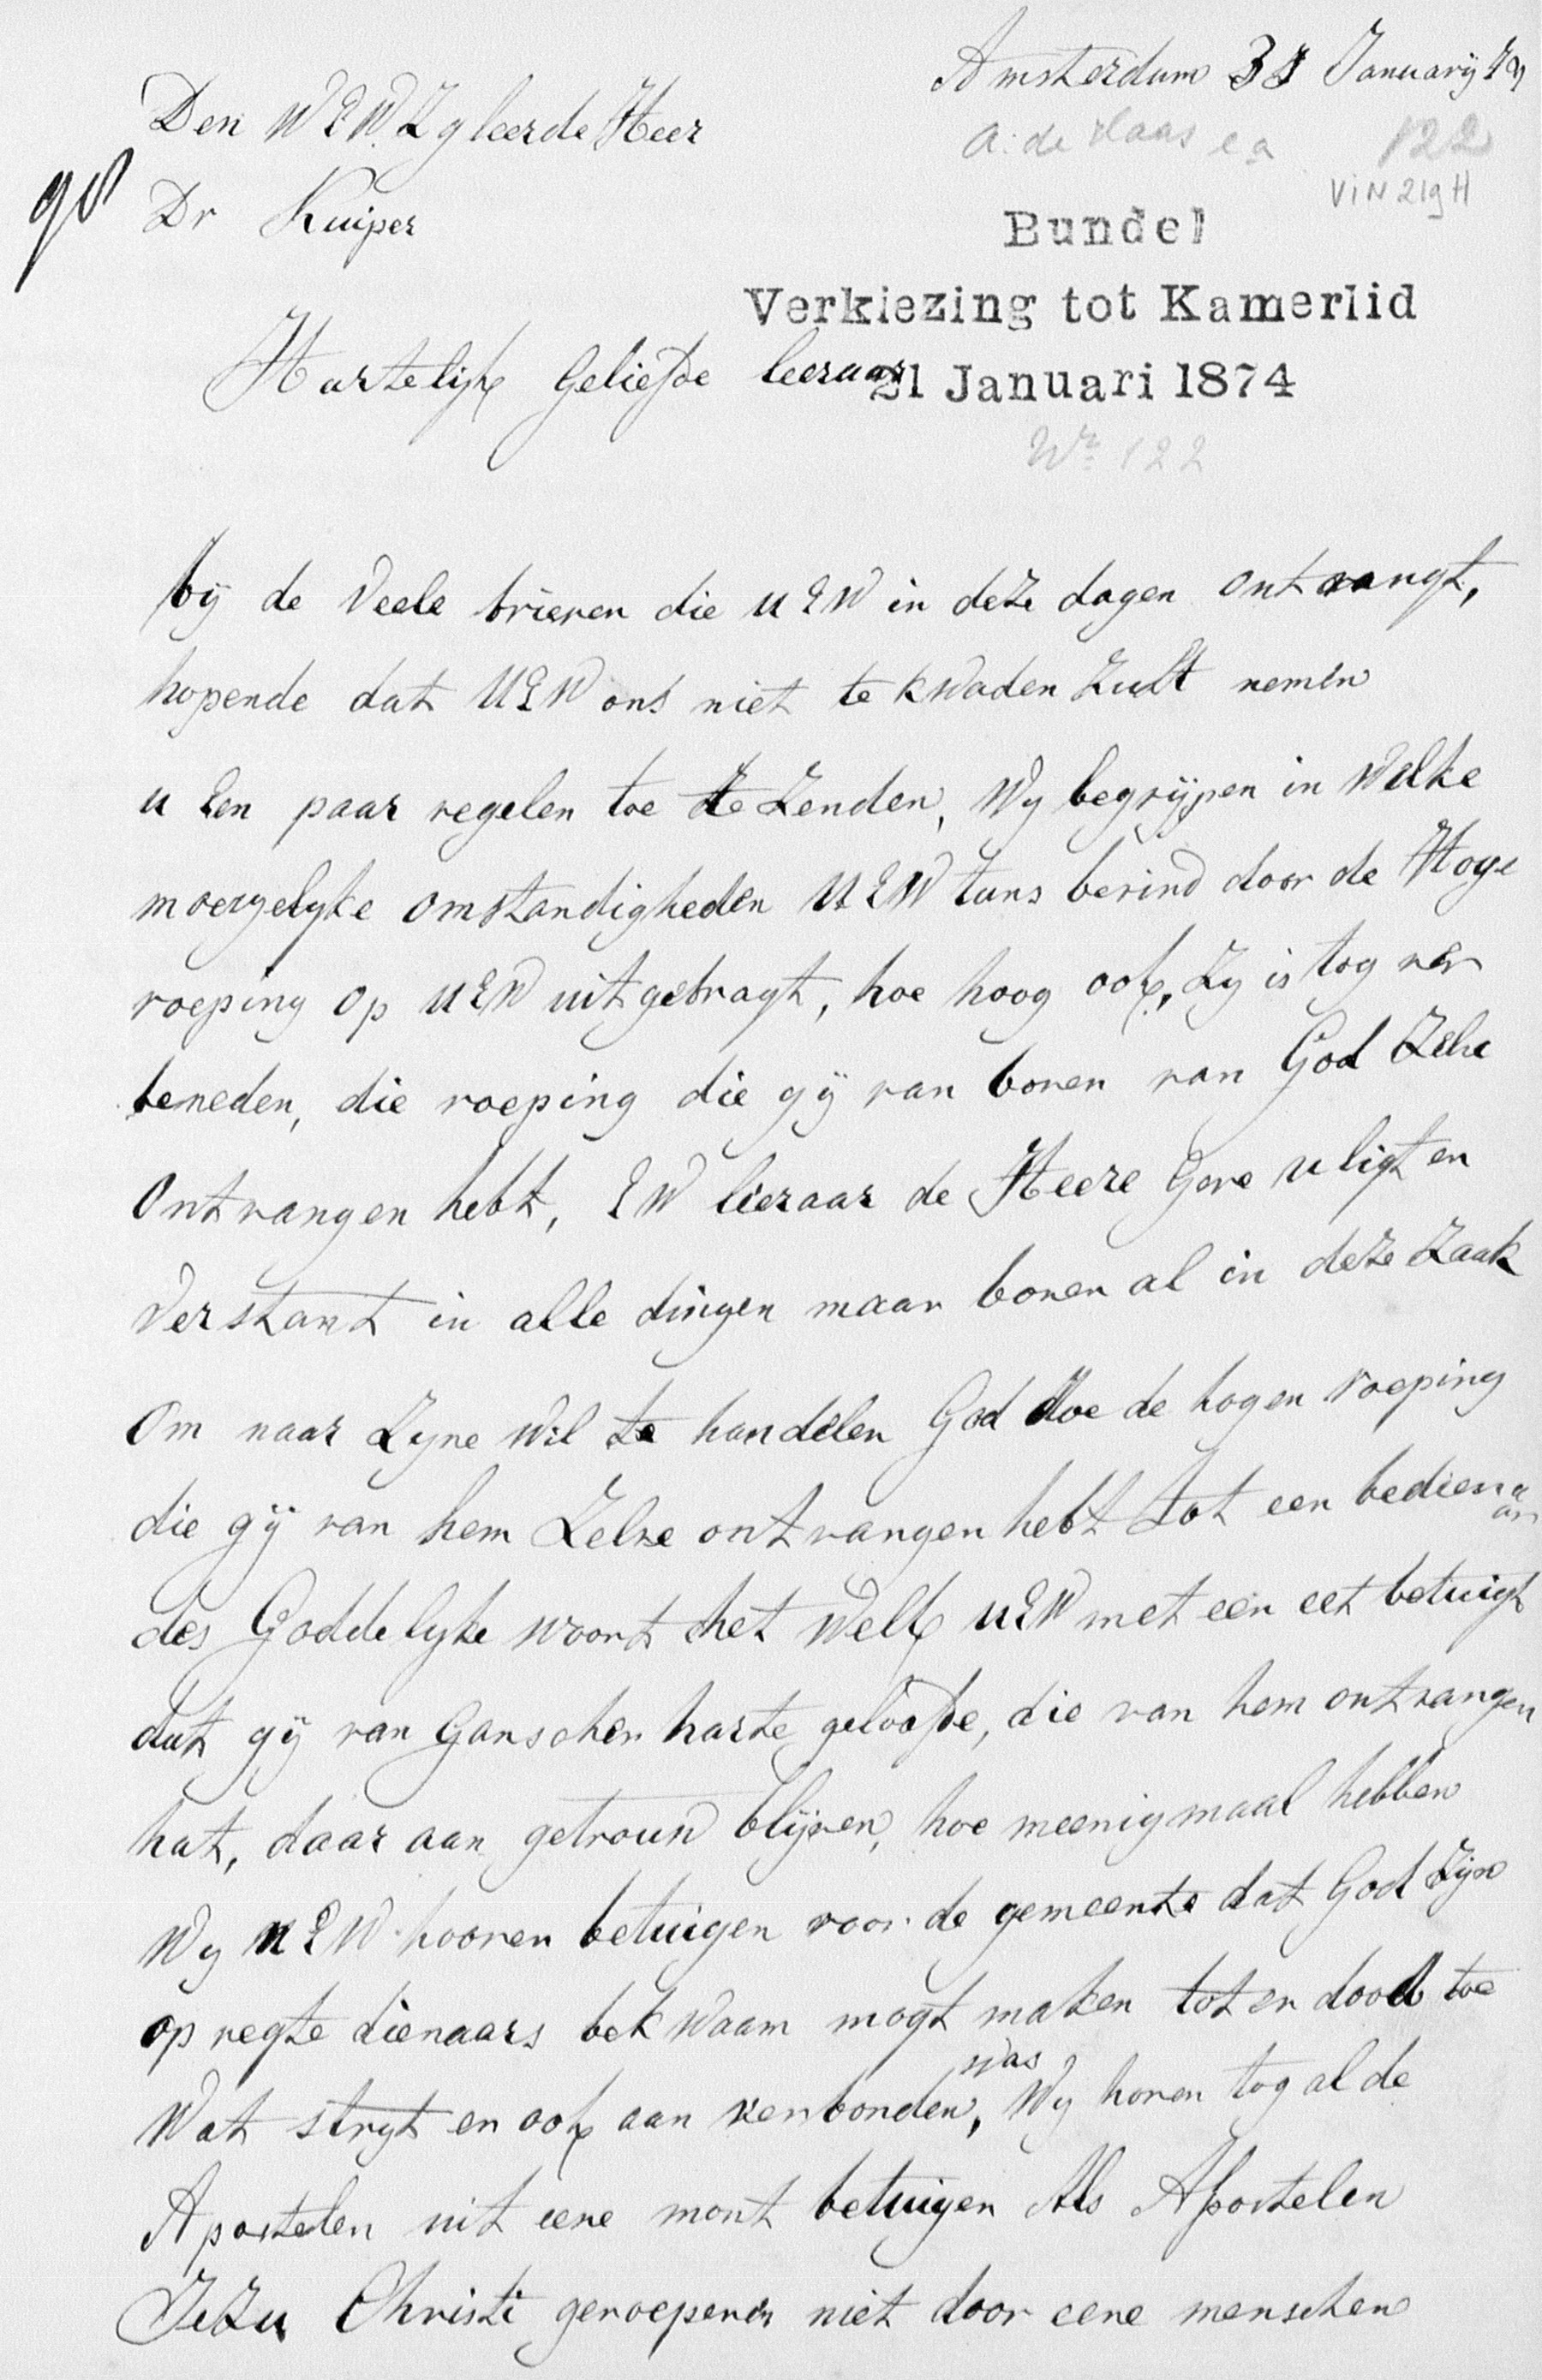 Amsterdam 31 Januarij 74
Den WEW.Zgleerde Heer
A. de Haas e a 122
VIN 219 H
Dr Kuiper
Bundel
Verkiezing tot Kamerlid
Hartelijk Geliefde leeraar
21 Januari 1874
Nr 122
bij de Veele brieven die UEW in deze dagen ontvangt,
hopende dat UEW ons niet te kwaden Zult nemen
u Een paar regelen toe te Zenden, Wy begrijpen in Welke
moeyelyke omstandigheden UEW tans bevind door de Hoge
roeping op UEW uitgebragt, hoe hoog ook, Zy is tog ver
beneden, die roeping die gij van boven van God Zelve
Ontvangen hebt, EW lieraar de Heere Geve u ligt en
Verstant in alle dingen maar boven al in deze Zaak
Om naar Zyne Wil te handelen God Hoe de hogen roeping
die gij van hem Zelve ontvangen hebt tot een bedienaar
des Goddelyke woort het Welk UEW met een eet betuigt
dat gij van Ganscher harte geloofde, die van hem ontvangen
hat, daar aan getrouw blijven, hoe meenigmaal hebben
Wy UEW hooren betuigen voor de gemeente dat God Zijn
op regte dienaars bekwaam mogt maken tot en dood toe
was
Wat stryt en ook aan verbonden, Wy horen tog al de
Apostelen uit eene mont betuigen Als Apostelen
JeZu Christi geroepenen niet door eene menschen